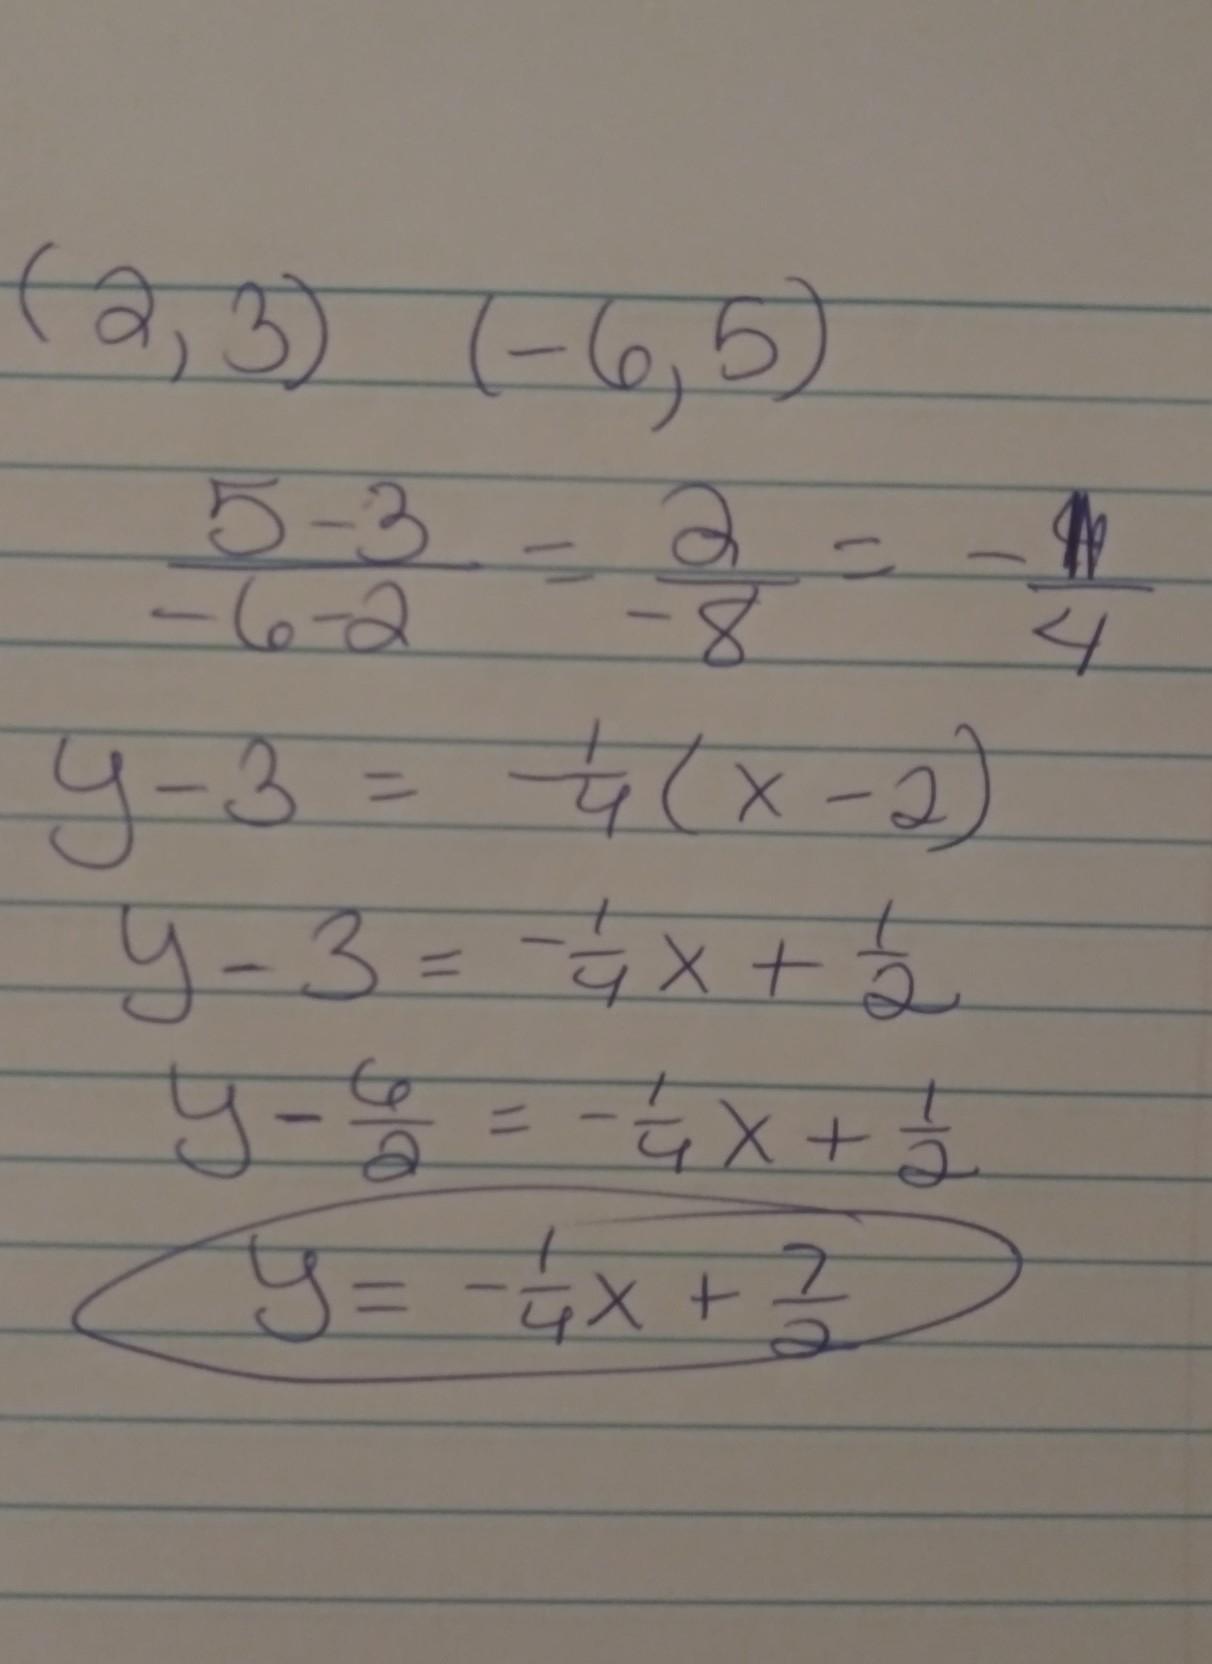 (2,3) (-6,5)
5-3/-6-2 = 2/-8 = -1/4
y-3 = -1/4(x-2)
y-3 = -1/4x + 1/2
y-6/2 = -1/4x + 1/2
y = -1/4x + 7/2